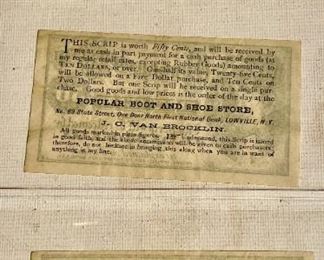 THIS SCRIP is worth Fifty Cents, and will be received by
me as cash in part payment for a cash purchase of goods (at
my regular retail rates, excepting Rubber Goods) amounting to
TEN DOLLARS, or over. One-half its value, Twenty-five Cents,
will be allowed on a Five Dollar purchase, and Ten Cents on
Two Dollars. But one Scrip will be received on a single pur-
chase. Good goods and low prices is the order of the day at the
POPULAR BOOT AND SHOE STORE,
No. 69 State Street, One Door North First National Bank, LOWVILLE, N. Y.
J. C. VAN BROCKLIN.
All goods marked in plain figures. is issued, this Scrip is issued
in good faith, and the above concession will be given to cash purchasers,
therefore, do not hesitate in bringing this along when you are in want of
anything in my line.